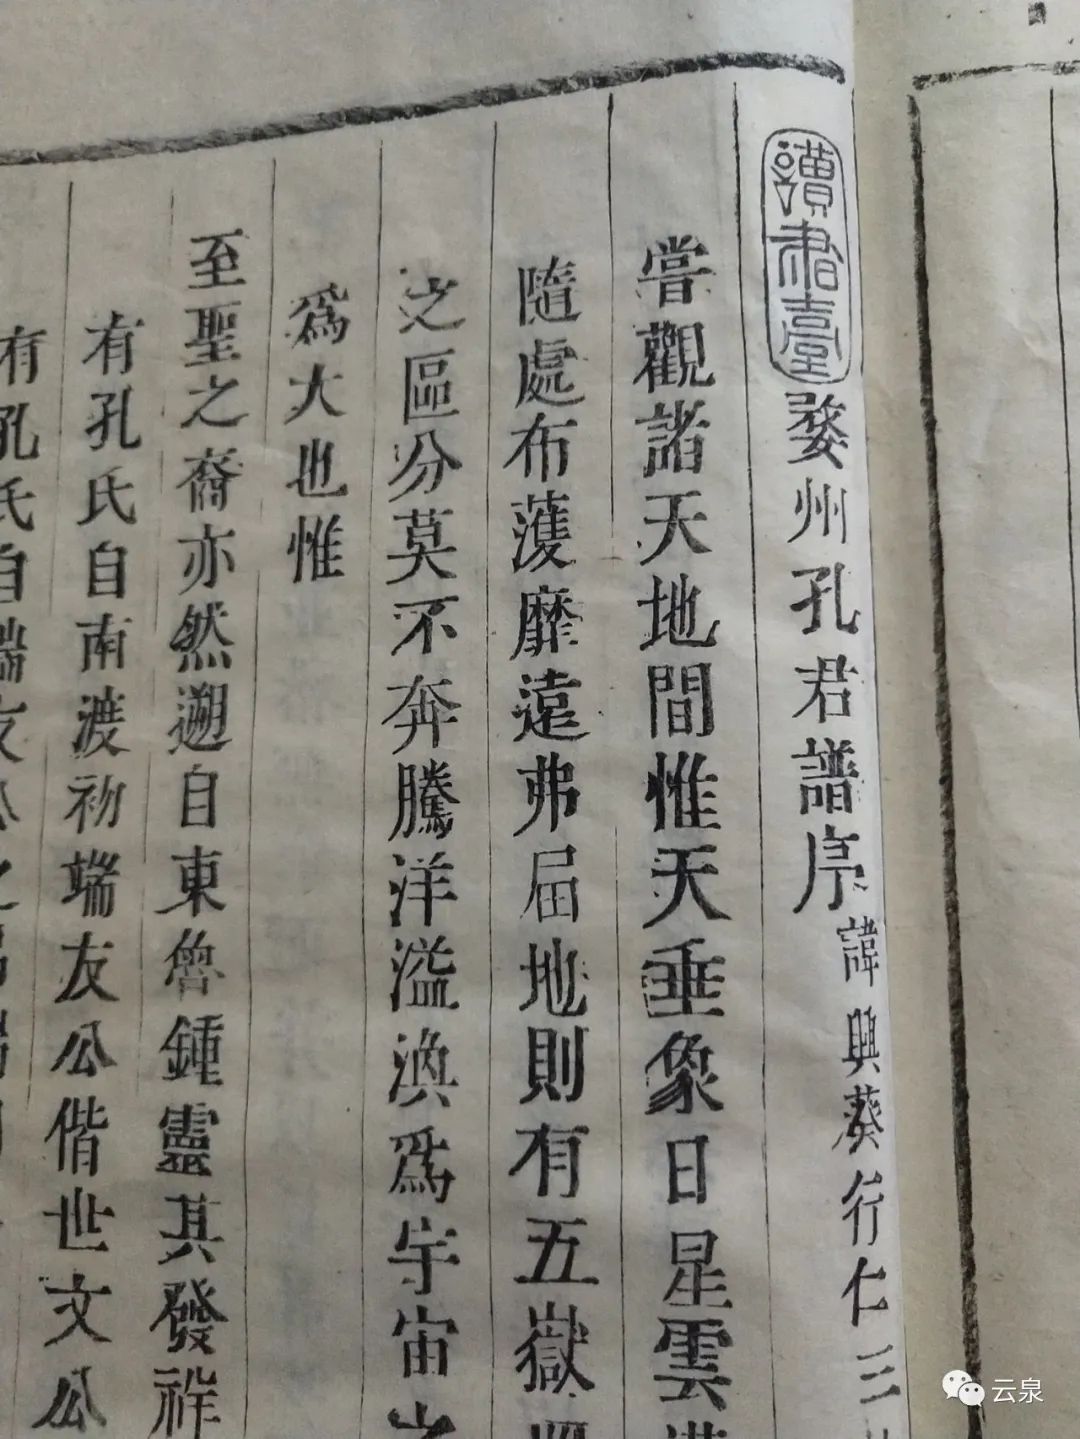 讀書臺
婺州孔君譜序
諱興葵行仁三
嘗觀諸天地間惟天垂象日星雲漢
隨處布濩靡遠弗屆地則有五嶽
之區分莫不奔騰洋溢渙為宇宙
為大也惟
至聖之裔亦然遡自東魯鍾靈其發祥
有孔氏自南渡初端友公偕世文公
有孔氏自端友公之
云泉